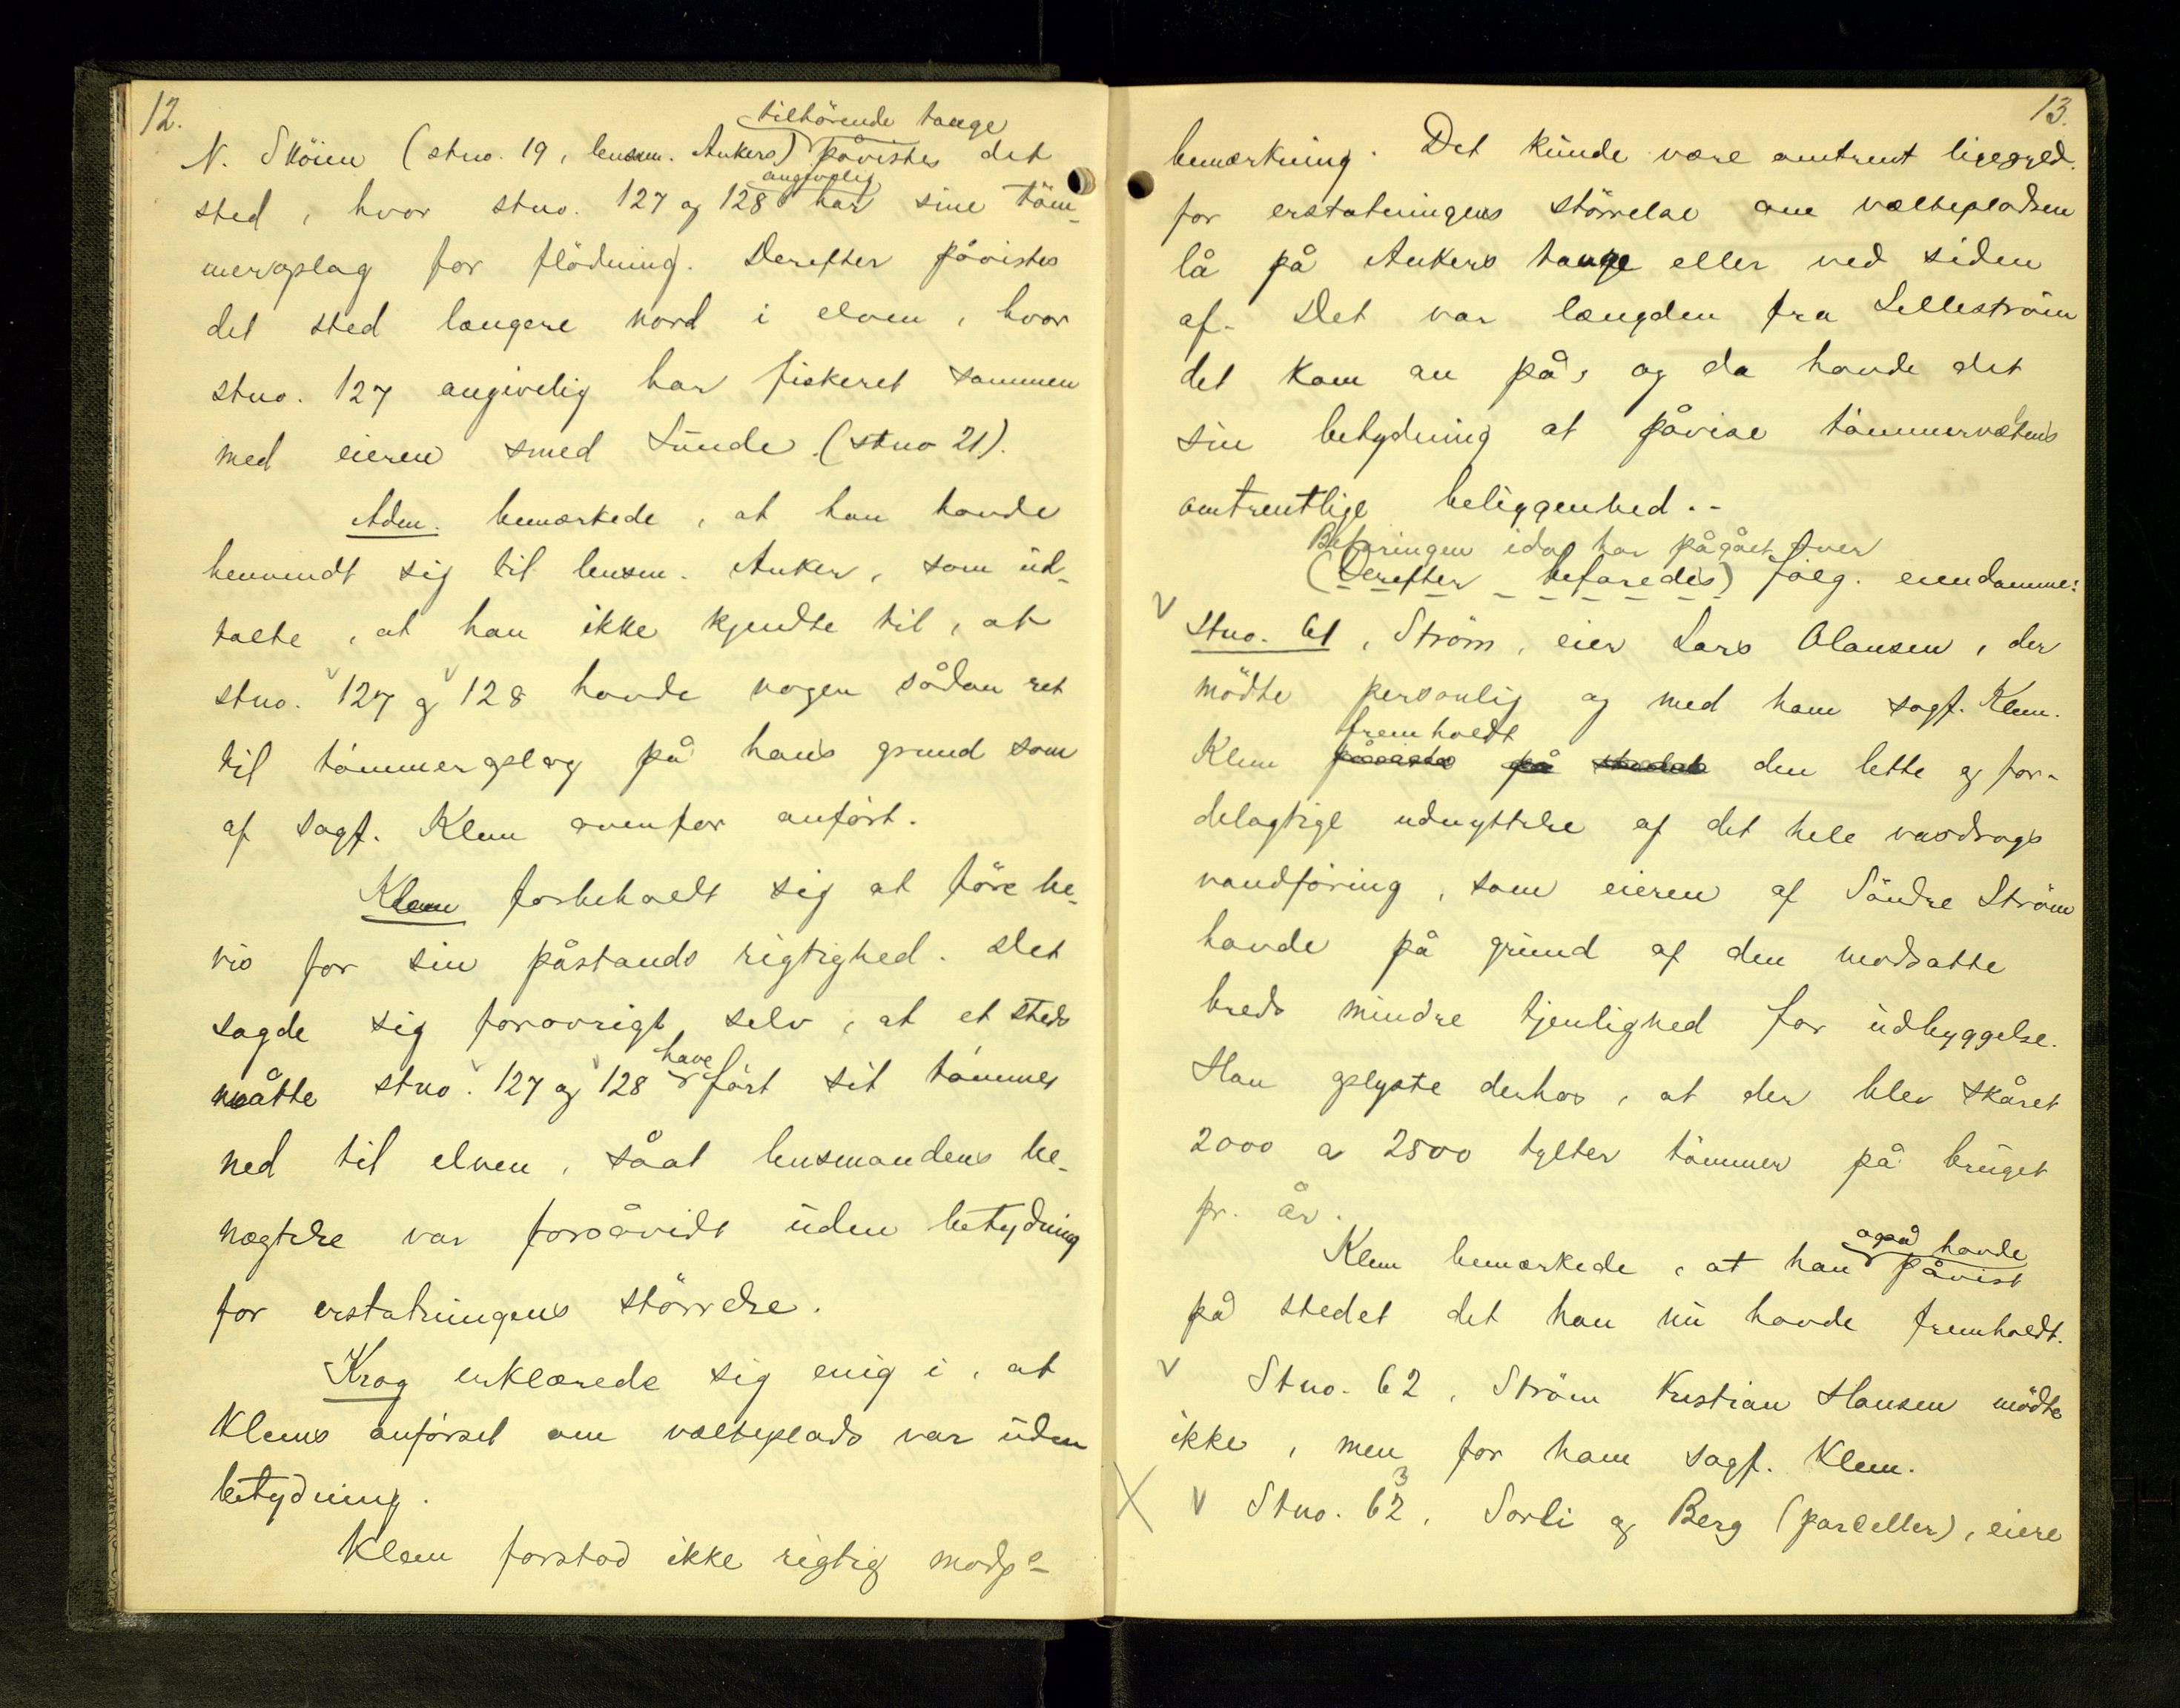 12.
tilhörende tange
N. Sköien (stno. 19, lensm. Ankers) påvistes det
angivelig
sted, hvor stno. 127 og 128 har sine töm-
meroplag for flödning. Derefter påvistes
det sted længere nord i elven, hvor
stno. 127 angivelig har fiskeret sammen
med eieren smed Lunde (stno 21).
Adm. bemærkede, at han havde
henvendt sig til lensm. Anker, som ud-
talte, at han ikke kjendte til, at
stno. 127 og 128 havde nogen sådan ret
til tömmeroplag på hans grund som
af sagf. Klem ovenfor anfört.
Klem forbeholdt sig at före be-
vis for sin påstands rigtighed. Det
sagde sig forøvrigt selv, at et steds
have
måtte stno. 127 og 128 fört sit tömmer
ned til elven, såat lensmandens be-
nægtelse var forsåvidt uden betydning
for erstatningens störrelse.
Krag erklærede sig enig i, at
Klems anförsel om vælteplads var uden
betydning.
Klem forstod ikke rigtig modp-
13.
bemærkning. Det kunde være omtrent ligegyld.
for erstatningens störrelse om væltepladsen
lå på Ankers tange eller ved siden
af. Det var længden fra Lilleström
det kom an på, og da havde det
sin betydning at påvise tömmervæltens
omtrentlige beliggenhed. -
Befaringen idag har pågået over
(Derefter befaredes) fölg. eiendomme:
v
stno. 61, Ström, eier Lars Olausen, der
mödte personlig og med ham sagf. Klem.
fremholdt
Klem påviste på stedet den lette og for-
delagtige udnyttelse af det hele vasdrags
vandföring, som eieren af Söndre Ström
havde på grund af den modsatte
breds mindre tjenlighed for udbyggelse.
Han oplyste derhos, at der blev skåret
2000 a 2500 tylter tömmer på bruget
pr. år.
også havde
Klem bemærkede, at han påvist
på stedet det han nu havde fremholdt.
v Stno. 62, Ström Kristian Hansen mödte
ikke, men for ham sagf. Klem.
3
X v Stno. 62, Sorli og Berg (parceller), eiere